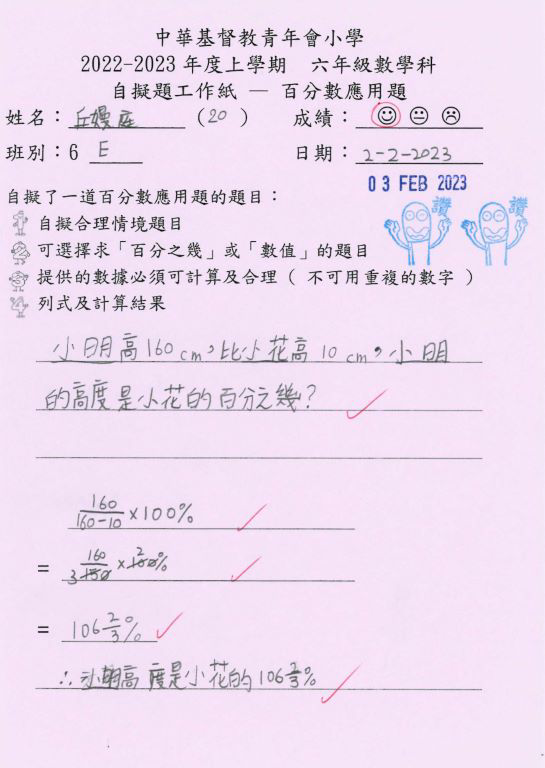 中華基督教青年會小學
2022-2023 年度上學期 六年級數學科
自擬題工作紙 — 百分數應用題
姓名：丘嫚庭 (20) 成績：
班別：6 E 日期：2-2-2023
03 FEB 2023
讚 讚
自擬了一道百分數應用題的題目：
自擬合理情境題目
可選擇求「百分之幾」或「數值」的題目
提供的數據必須可計算及合理 ( 不可用重複的數字 )
列式及計算結果
小明高160cm，比小花高10cm，小明
的高度是小花的百分之幾？
160/160-10 ×100%
= 160/3 150 × 2 100%
= 106 2/3 %
∴小明高度是小花的106 2/3 %